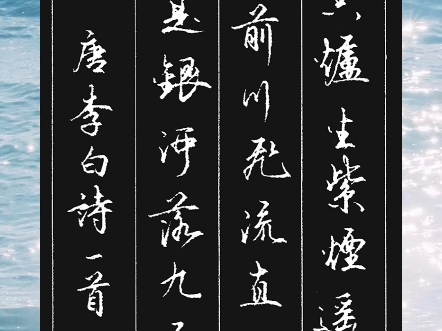 爐生紫煙遙
前川飛流直
是銀河落九
唐李白詩一首